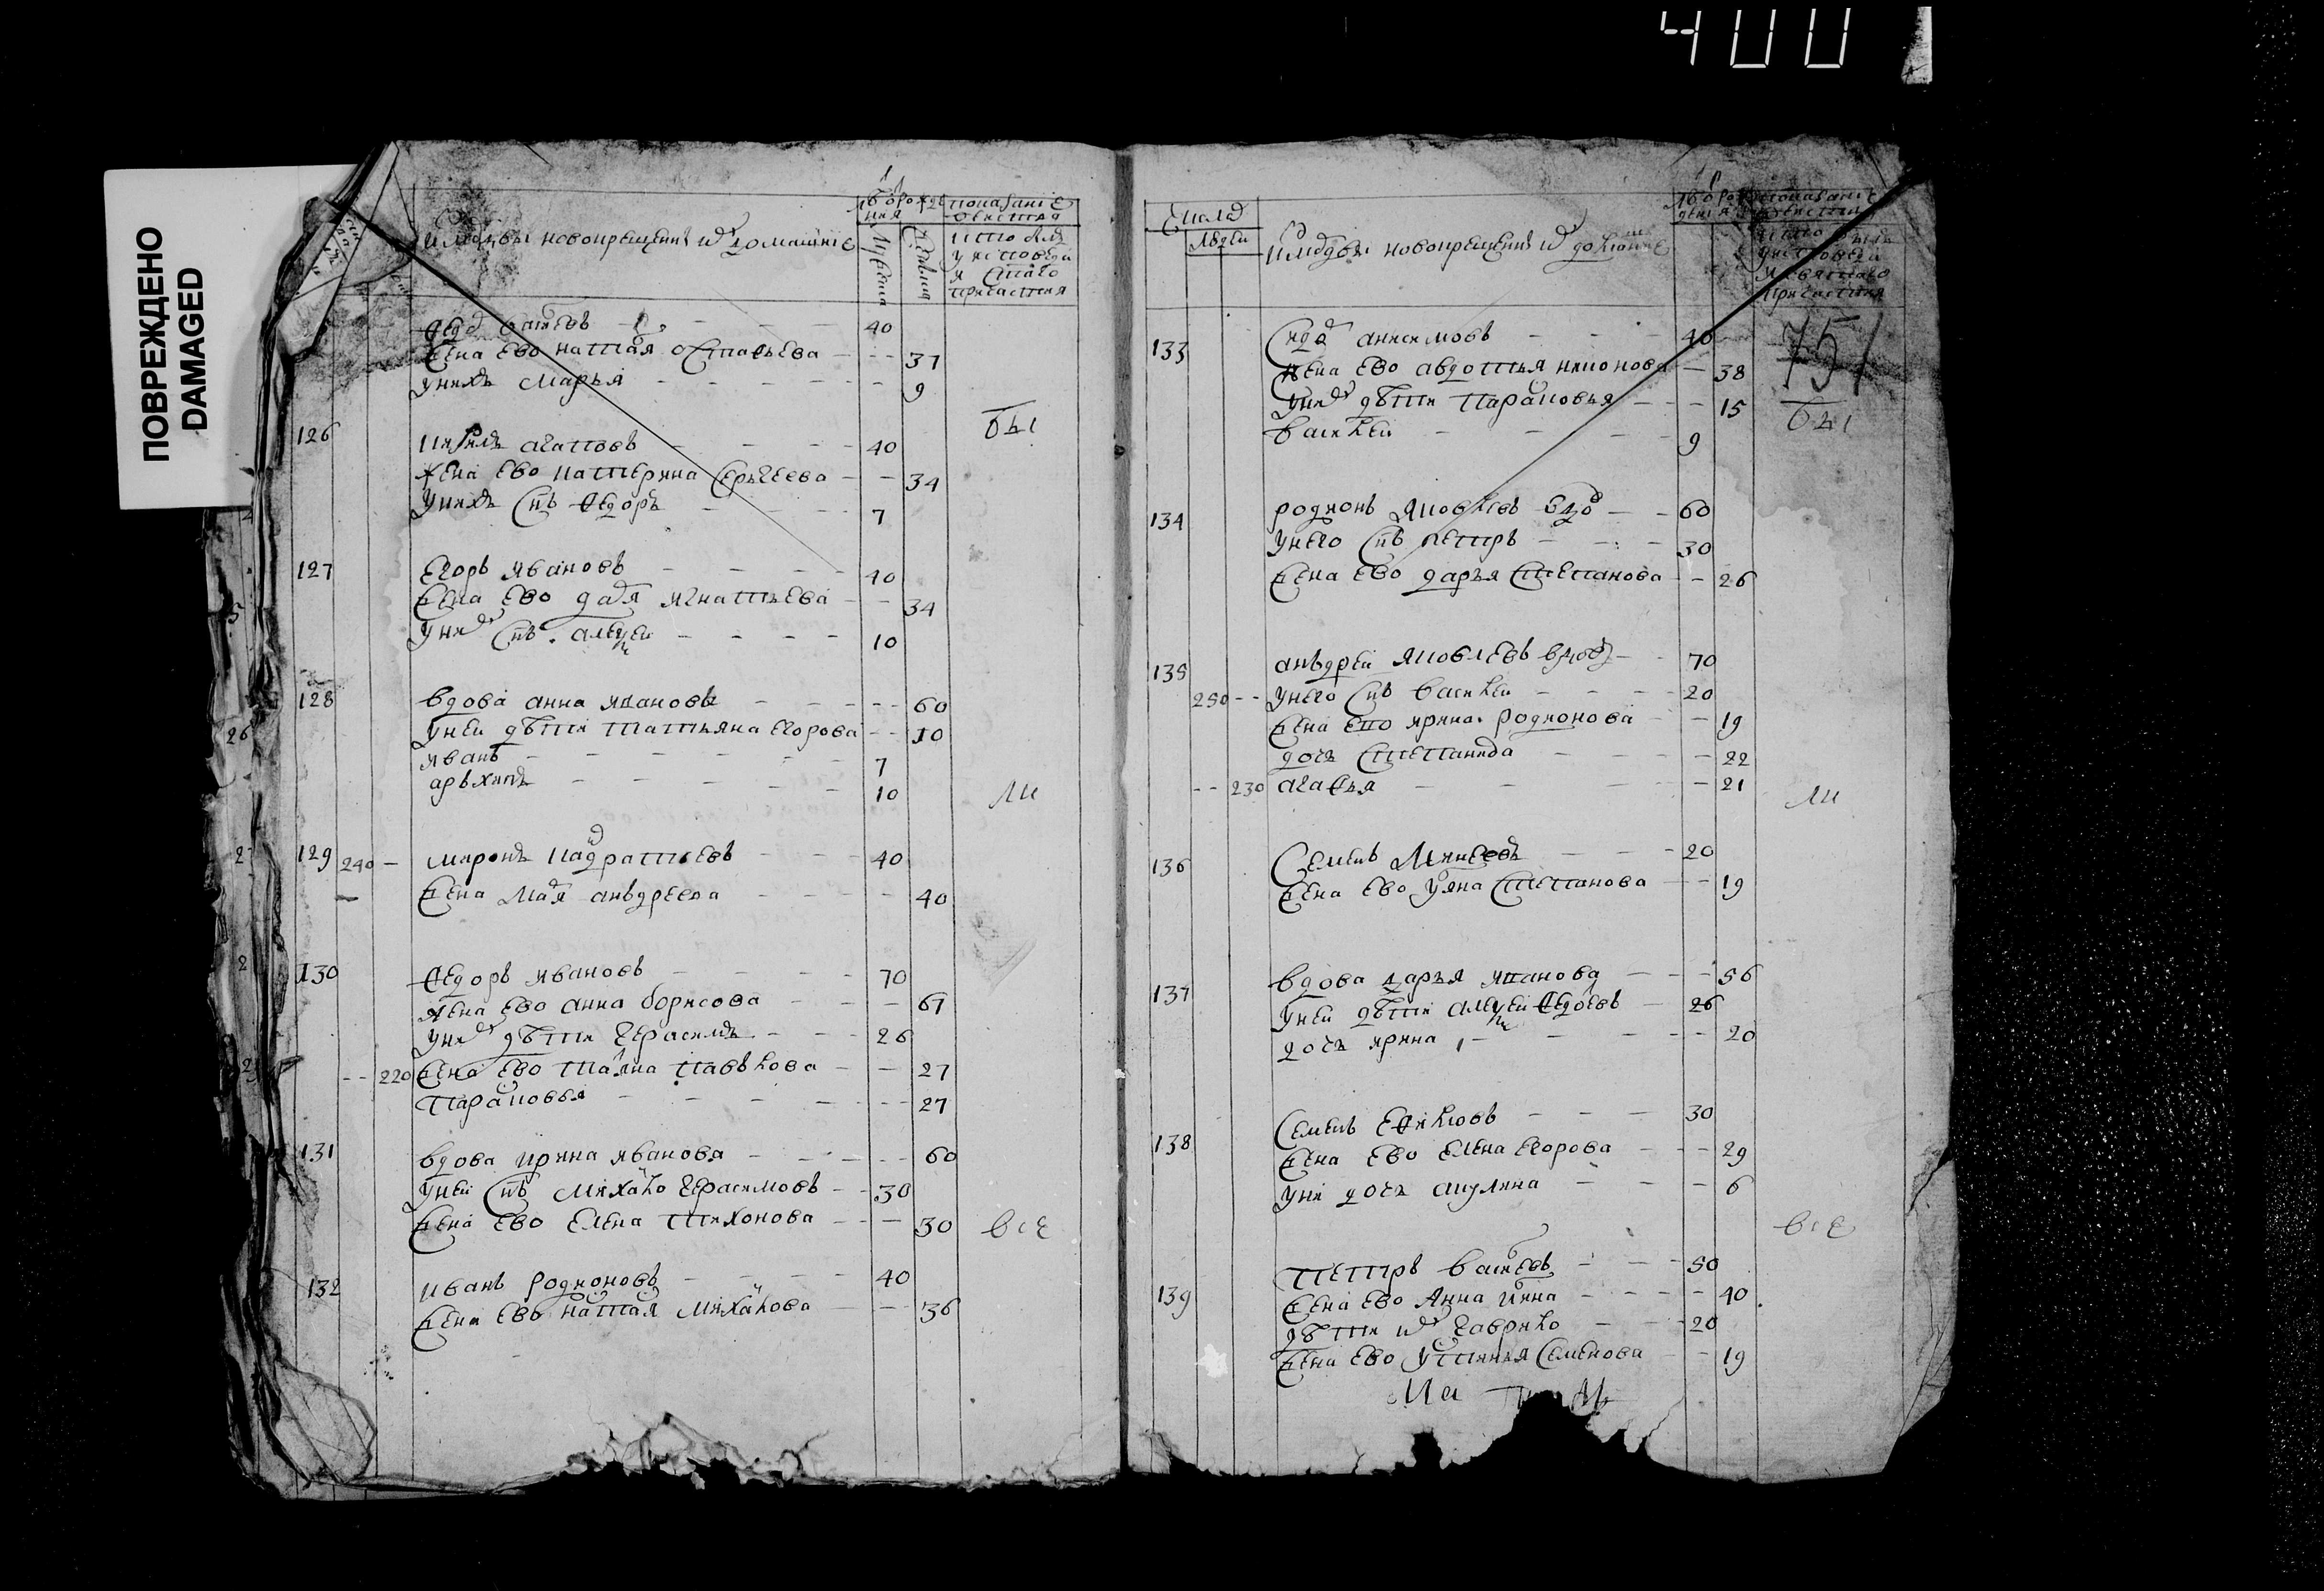 400
ПОВРЕЖДЕНО
DAMAGED
имѧны новокрещенъ и домашнїе
мужска
женска
показанїе
что был
у исповеди
и стаго
причастия
Федо Васиевъ 40
Жена ево Наталя Остафьева 37
у нихъ Марья 9
126 Кирилъ Агаповъ 40
Жена ево Катерина Серьгеева 34
у нихъ снъ Федоръ 7
бы
127 Егоръ Ивановъ 40
Жена ево Дая Игнатьева 34
у них снъ Алеѯеи 10
128 вдова Анна Иванова 60
у неи дѣти Татьяна Егорова 10
Иванъ 7
Арьхипъ 10
ли
129 240 Миронъ Кадратьевъ 40
Жена Мая Аньдреева 40
130 Федоръ Ивановъ 70
Жена ево Анна Борисова 67
у них дѣти Герасимъ 26
220 Жена ево Таяна Павълова 27
Параковья 27
131 вдова Ирина Иванова 60
у неи снъ Михаило Герасимовъ 30
Жена ево Елена Тихонова 30
все
132 Иванъ Родионовъ 40
Жена ево Наталя Михаилова 36
Люди
имѧны новокрещенъ и домашние
что были
у исповеди
и святаго
причастия
751
133 Сидо Анисимовъ 40
Жена ево Авдотья Никонова 38
у них дѣти Параковья 15
Василеи 9
бы
134 Родионъ Яковлевъ вдо 60
у него снъ Петръ 30
Жена ево Дарья Степанова 26
135 Аньдреи Яковлевъ вдов 70
250 у него снъ Василеи 20
Жена ево Ирина Родионова 19
дочь Степанида 22
230 Агафья 21
ли
136 Семенъ Микеевъ 20
Жена ево Уяна Степанова 19
137 вдова Дарья Иванова 56
у неи дѣти Алеѯеи Федоевъ 26
дочь Ирина 20
138 Семенъ Ефиловъ 30
Жена ево Елена Егорова 29
у ни дочь Акулина 6
все
139 Петръ Васиевъ 50
Жена ево Анна Иина 40
дѣти их Гаврило 20
Жена ево Устинья Семенова 19